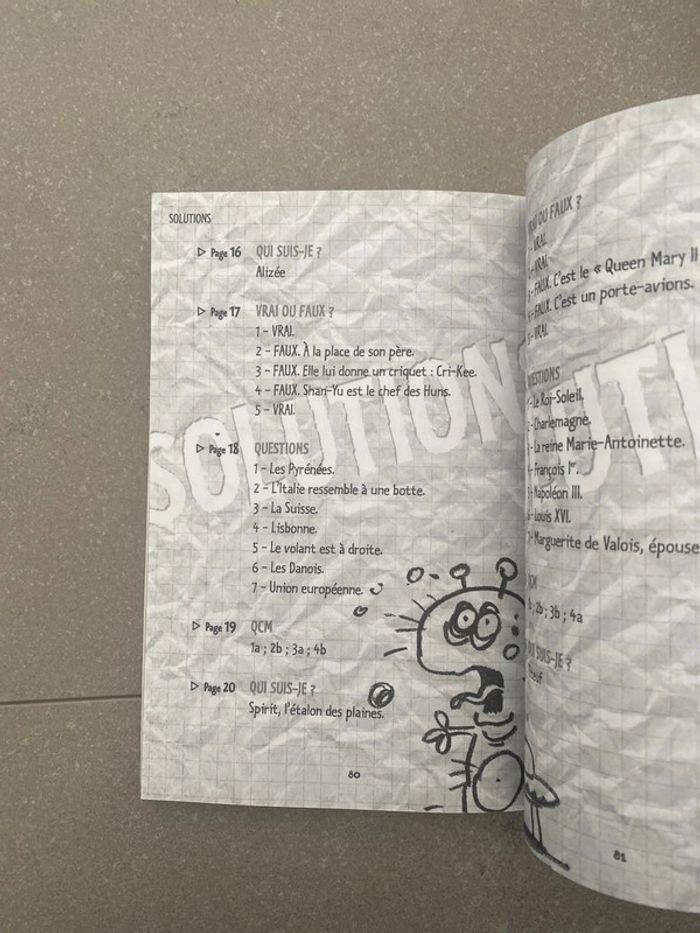 SOLUTIONS
▷ Page 16 QUI SUIS-JE ?
Alizée
▷ Page 17 VRAI OU FAUX ?
1 – VRAI.
2 – FAUX. À la place de son père.
3 – FAUX. Elle lui donne un criquet : Cri-Kee.
4 – FAUX. Shan-Yu est le chef des Huns.
5 – VRAI.
▷ Page 18 QUESTIONS
1 – Les Pyrénées.
2 – L'Italie ressemble à une botte.
3 – La Suisse.
4 – Lisbonne.
5 – Le volant est à droite.
6 – Les Danois.
7 – Union européenne.
▷ Page 19 QCM
1a ; 2b ; 3a ; 4b
▷ Page 20 QUI SUIS-JE ?
Spirit, l'étalon des plaines.
80
OU FAUX ?
VRAI.
VRAI.
FAUX. C'est le « Queen Mary II
FAUX. C'est un porte-avions.
VRAI.
QUESTIONS
Le Roi-Soleil.
2 – Charlemagne.
La reine Marie-Antoinette.
François Ier.
Napoléon III.
Louis XVI.
Marguerite de Valois, épouse
QCM
2b ; 3b ; 4a
QUI SUIS-JE ?
81
SOLUTION
UTI